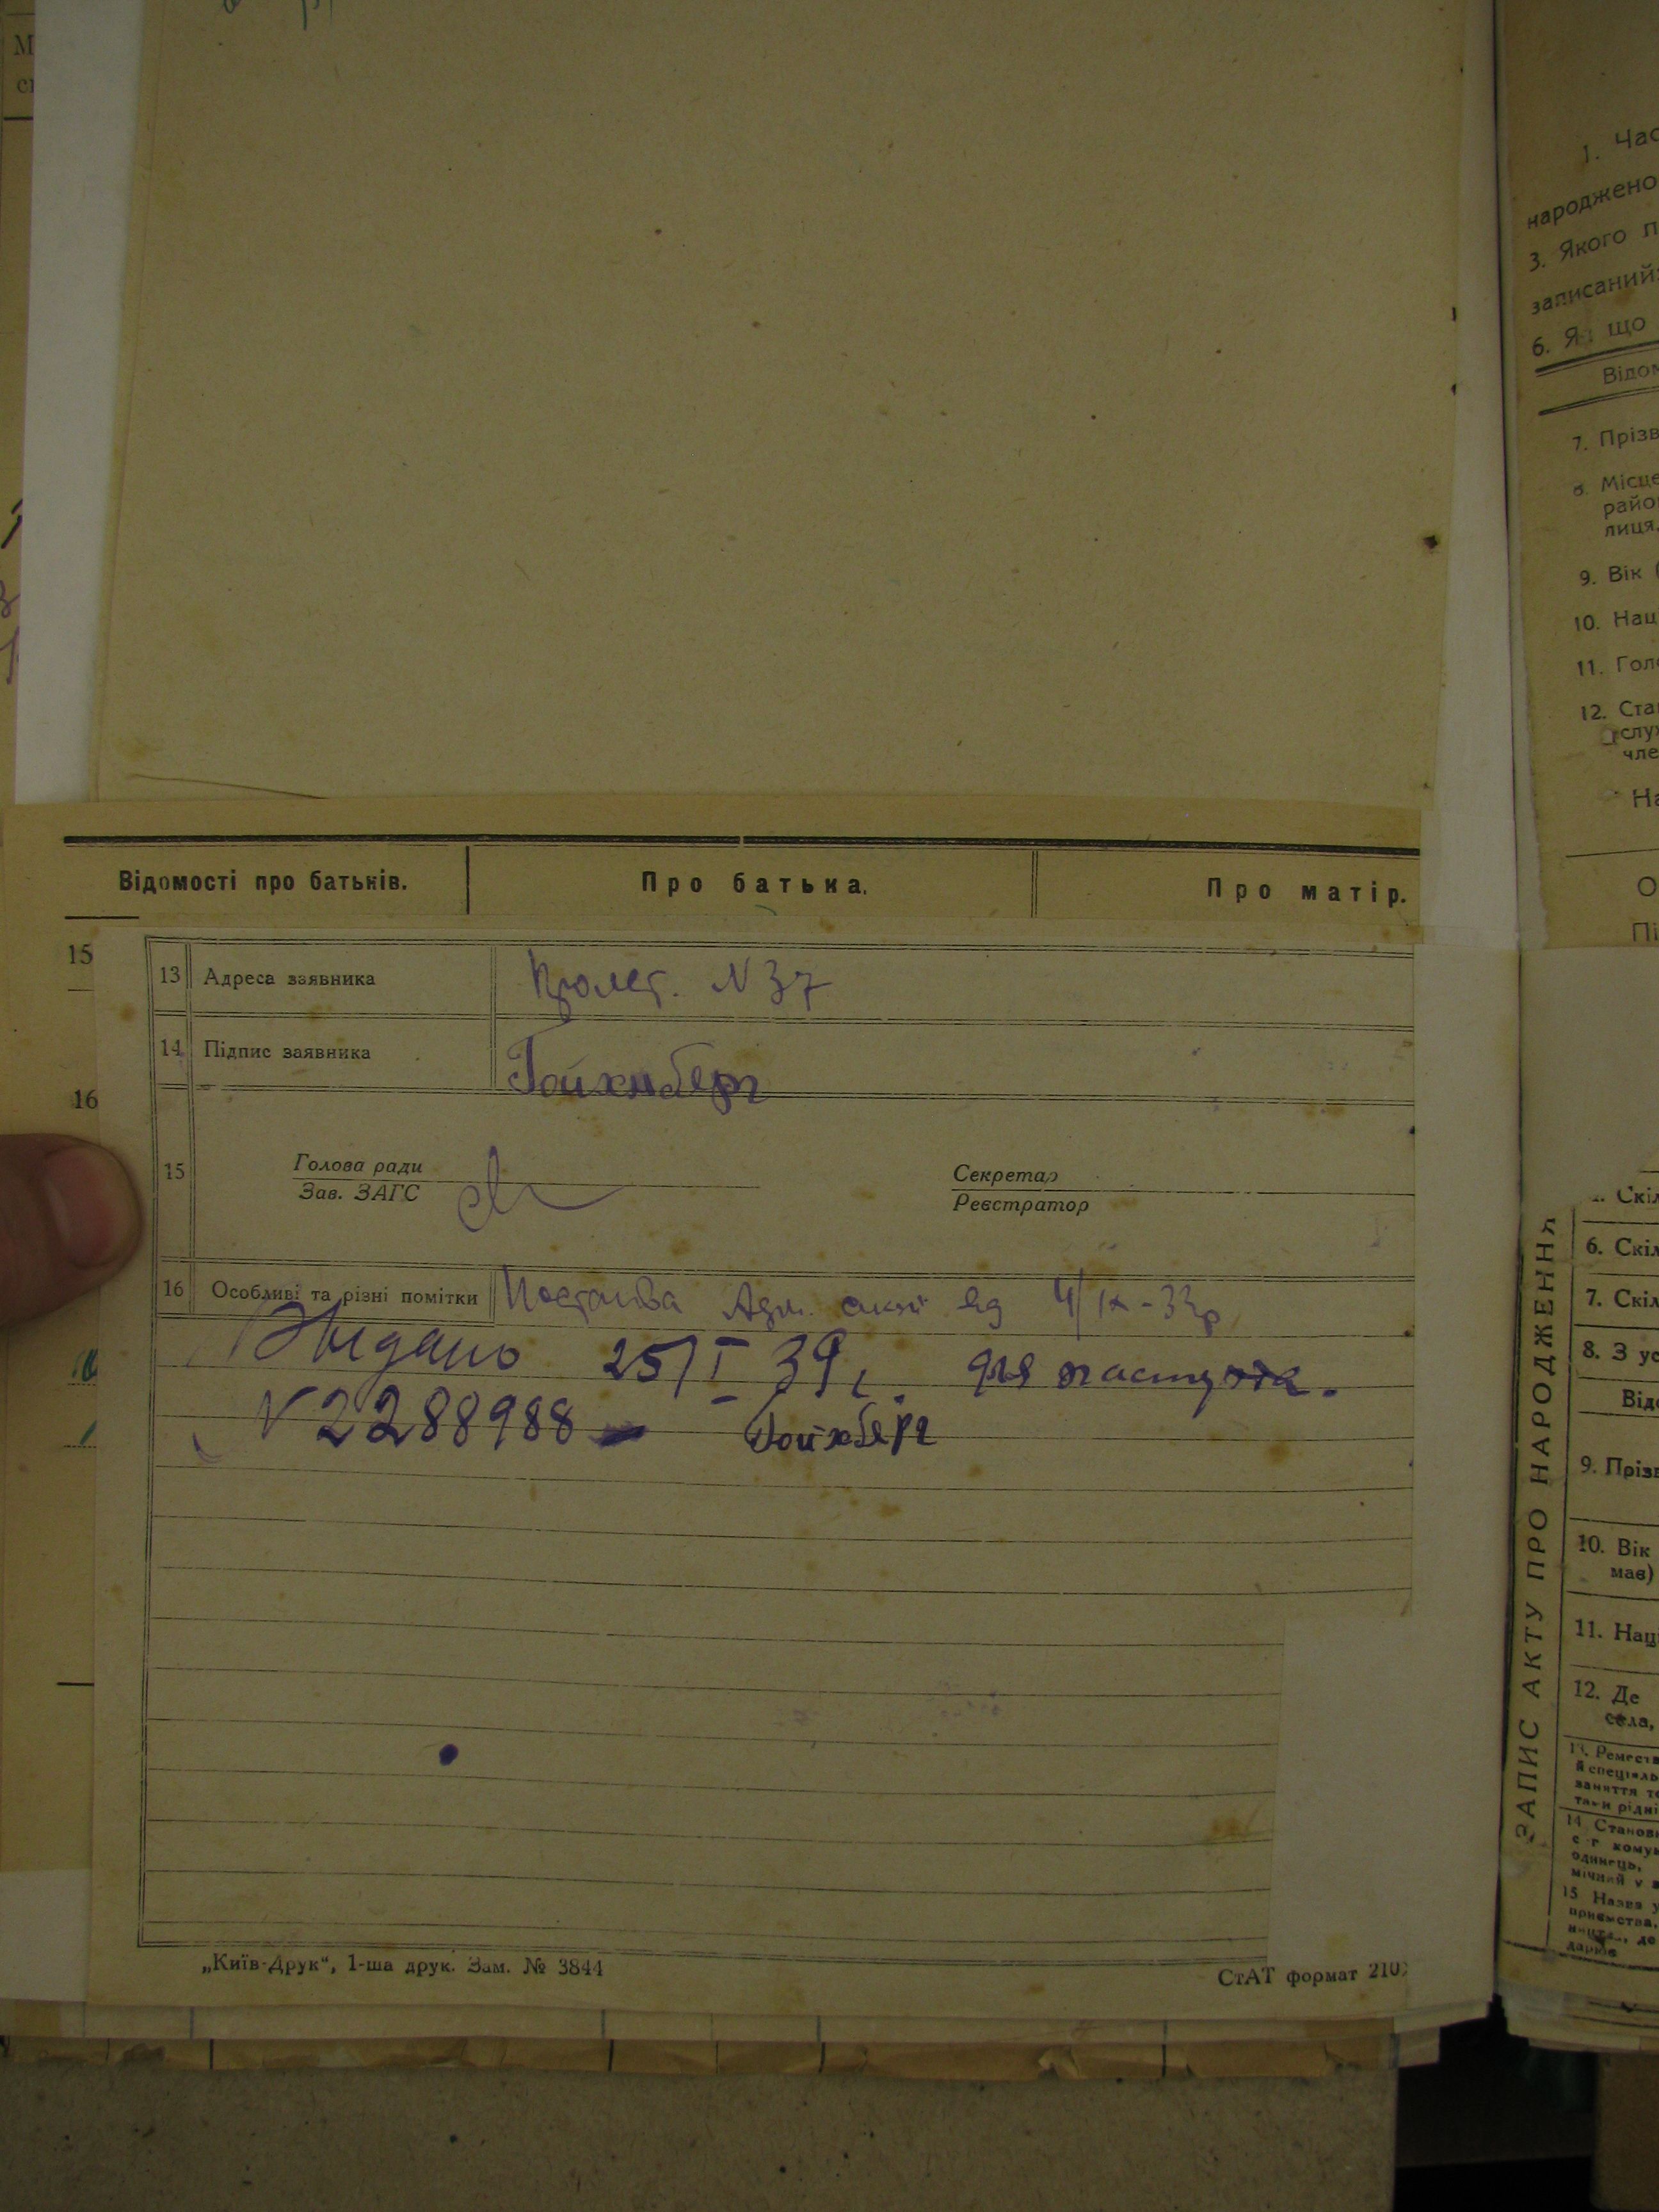 Відомості про батьків.
Про батька.
Про матір.
15
16
13 Адреса заявника
Пролет. N 37
14 Підпис заявника
Гойхнберг
15
Голова ради
Зав. ЗАГС
Секретар
Реєстратор
16 Особливі та різні помітки
Постанова Адм. від 4/IX-33р
Выдано 25/I 39г. для паспорта.
N 2288988 Гойхберг
„Київ-Друк“, 1-ша друк. Зам. № 3844
СтАТ формат 210
1. Час
народжено
3. Якого п
записаний:
6. Я, що
Відом
7. Прізв
8. Місце
райо
лиця,
9. Вік
10. Нац
11. Гол
12. Ста
слу
чле
На
О
Пі
ЗАПИС АКТУ ПРО НАРОДЖЕННЯ
Скіл
6. Скіл
7. Скіл
8. З ус
Відо
9. Прізв
10. Вік
має)
11. Нац
12. Де
села,
13. Реместв
й спеціаль
заняття
14. Станови
одинець,
15 Назва у